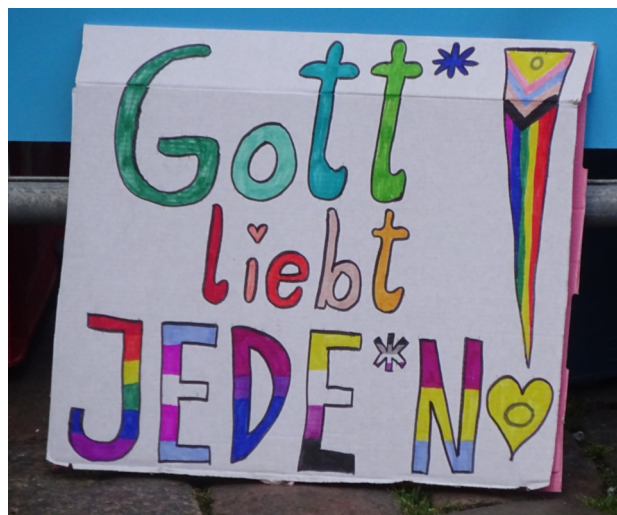 Gott*
liebt
JEDE*N!